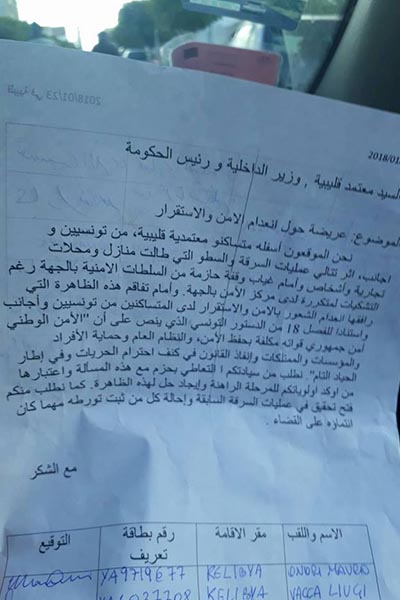 2018/01
السيد معتمد قليبية , وزير الداخلية و رئيس الحكومة
الموضوع: عريضة حول انعدام الامن والاستقرار
نحن الموقعون أسفله متساكنو معتمدية قليبية، من تونسيين و
اجانب، اثر تتالي عمليات السرقة والسطو التي طالت منازل ومحلات
تجارية وأشخاص وأمام غياب وقفة حازمة من السلطات الامنية بالجهة رغم
التشكيات لمتكررة لدى مركز الأمن بالجهة. وأمام تفاقم هذه الظاهرة التي
رافقها انعدام الشعور بالامن والاستقرار لدى المتساكنين من تونسيين وأجانب
واستنادا للفصل 18 من الدستور التونسي الذي ينص على أن "الأمن الوطني
أمن جمهوري قواته مكلفة بحفظ الأمن، والنظام العام وحماية الأفراد
والمؤسسات والممتلكات وإنفاذ القانون في كنف احترام الحريات وفي إطار
الحياد التام" نطلب من سيادتكم التعاطي بحزم مع هذه المسألة واعتبارها
من اوكد اولوياتكم للمرحلة الراهنة وإيجاد حل لهذه الظاهرة. كما نطلب منكم
فتح تحقيق في عمليات السرقة السابقة وإحالة كل من ثبت تورطه مهما كان
انتماره على القضاء .
مع الشكر
الاسم واللقب مقر الاقامة رقم بطاقة تعريف التوقيع
ONORI MAURO KELIBYA YA9719677
VACCA LIUGI KELIBYA
قليبية في 2018/01/23